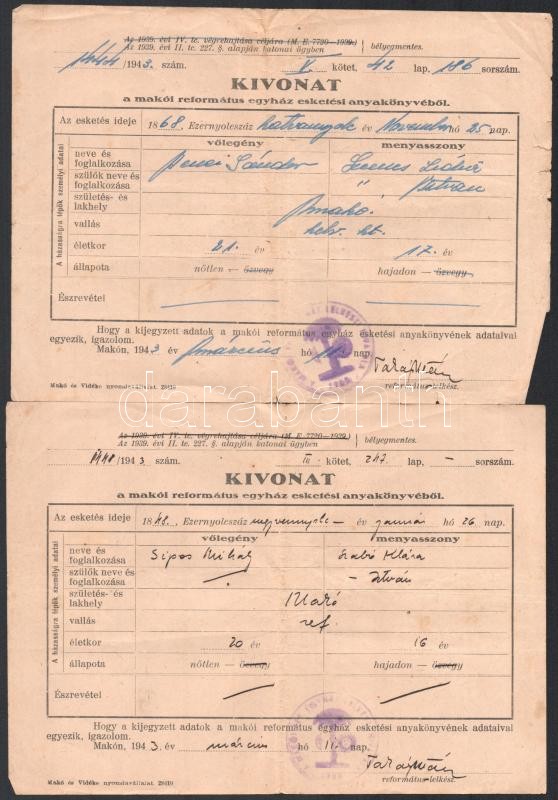 Az 1939. évi IV. tc. végrehajtása céljára (M. E. 7720—1939.)
Az 1939. évi II. tc. 227. §. alapján katonai ügyben
bélyegmentes.
/1943. szám. V. kötet, 42 lap, 186 sorszám.
KIVONAT
a makói református egyház esketési anyakönyvéből.
Az esketés ideje 1868. Ezernyolcszáz hatvannyolc év November hó 25 nap.
A házasságra lépők személyi adatai
vőlegény menyasszony
neve és foglalkozása Sándor
szülők neve és foglalkozása " István
születés- és lakhely Makó.
vallás helv. hit.
életkor 21. év 17. év
állapota nőtlen — özvegy hajadon — özvegy
Észrevétel
Hogy a kijegyzett adatok a makói református egyház esketési anyakönyvének adataival
egyezik, igazolom.
Makón, 1943 év március hó 11. nap.
református-lelkész.
Makó és Vidéke nyomdavállalat. 28619
darabanth
Az 1939. évi IV. tc. végrehajtása céljára (M. E. 7720—1939.)
Az 1939. évi II. tc. 227. §. alapján katonai ügyben
bélyegmentes.
/1943 szám. III. kötet, 247. lap, — sorszám.
KIVONAT
a makói református egyház esketési anyakönyvéből.
Az esketés ideje 1848. Ezernyolcszáz negyvennyolc — év január hó 26 nap.
A házasságra lépők személyi adatai
vőlegény menyasszony
neve és foglalkozása Sipos Mihály Szabó Klára
szülők neve és foglalkozása — István
születés- és lakhely Makó
vallás ref.
életkor 20 év 16 év
állapota nőtlen — özvegy hajadon — özvegy
Észrevétel
Hogy a kijegyzett adatok a makói református egyház esketési anyakönyvének adataival
egyezik, igazolom.
Makón, 1943. év március hó 11. nap.
református-lelkész.
Makó és Vidéke nyomdavállalat. 28619